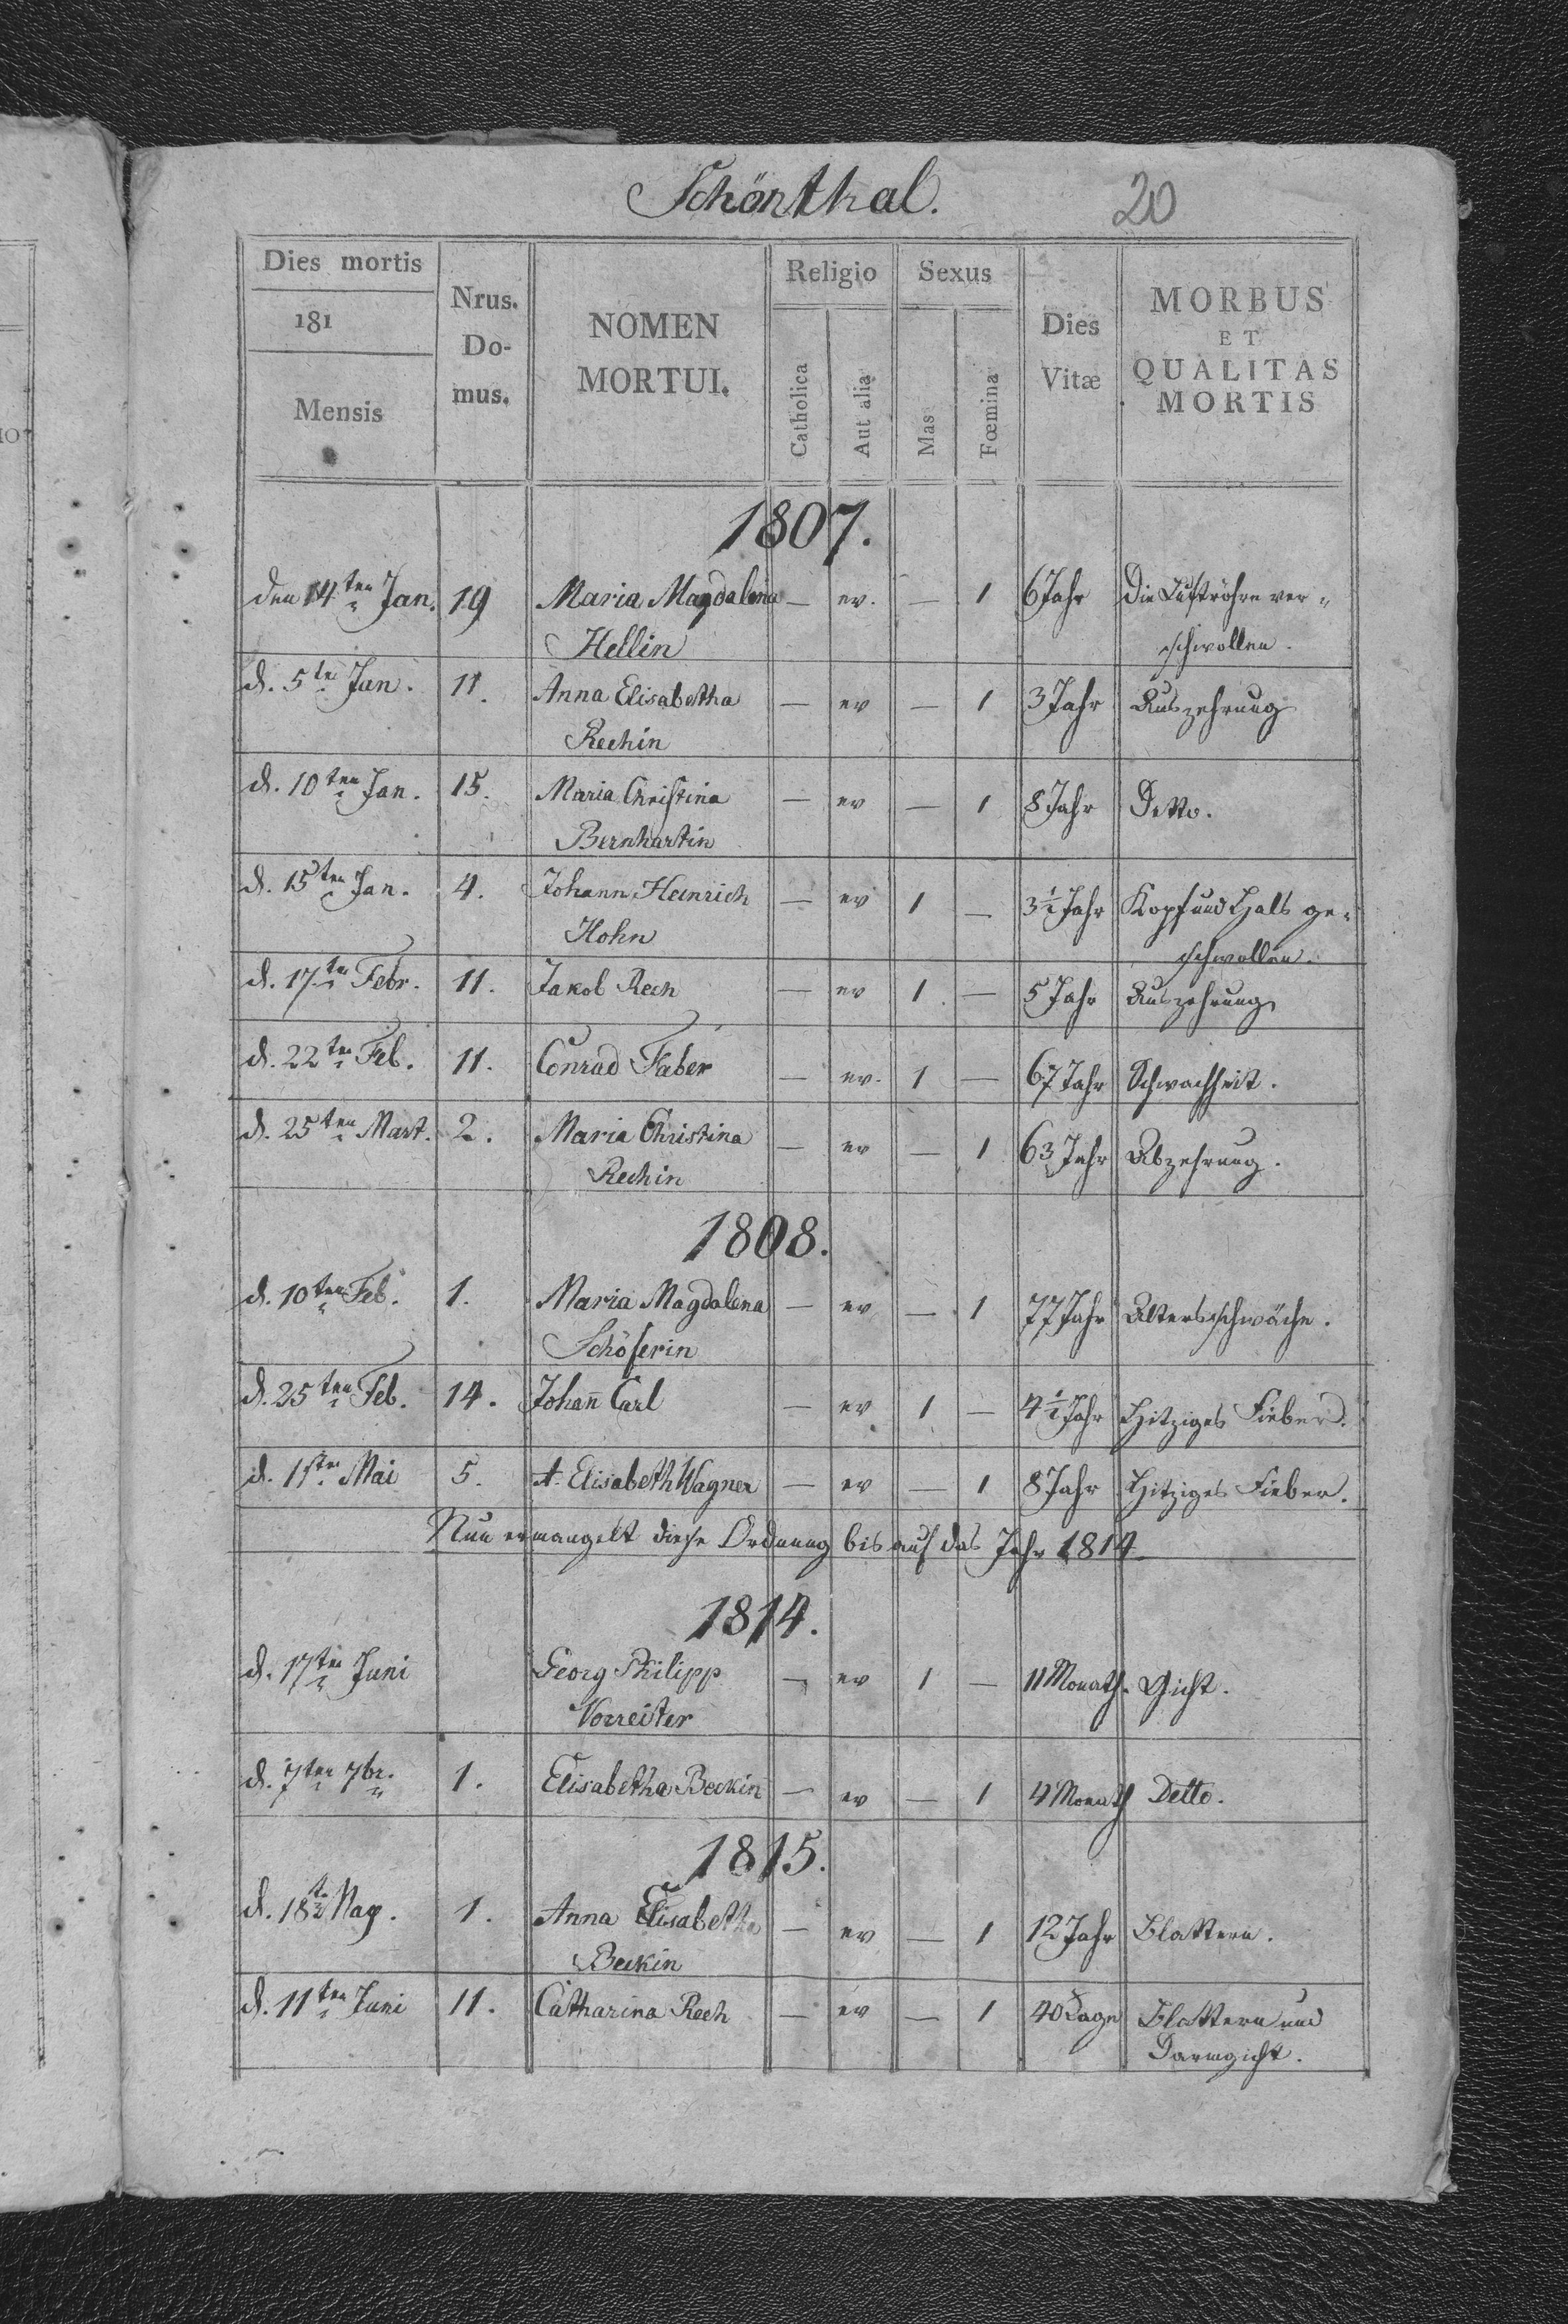 Schönthal.
20
Dies mortis
181
Mensis
Nrus.
Do-
mus.
NOMEN
MORTUI.
Religio
Catholica
Aut alia
Sexus
Mas
Fœmina
Dies
Vitæ
MORBUS
ET
QUALITAS
MORTIS
1807.
den 14ten Jan. 19 Maria Magdalena — ev. — 1 6 Jahr Die Luftröhre ver-
Hellin schwollen.
d. 5te Jan. 11. Anna Elisabetha — ev — 1 3 Jahr Auszehrung
Rechin
d. 10ten Jan. 15. Maria Christina — ev — 1 8 Jahr Detto.
Bernhartin
d. 15ten Jan. 4. Johann Heinrich — ev 1 — 3½ Jahr Kopf und Hals ge-
Hohn schwollen.
d. 17ten Febr. 11. Jakob Rech — ev 1. — 5 Jahr Auszehrung
d. 22ten Feb. 11. Conrad Faber — ev. 1 — 67 Jahr Schwachheit.
d. 25ten Mart. 2. Maria Christina — ev — 1 63 Jahr Abzehrung.
Rechin
1808.
d. 10ten Feb. 1. Maria Magdalena — ev — 1 77 Jahr Altersschwäche.
Schöferin
d. 25ten Feb. 14. Johan̄ Carl — ev 1 — 4½ Jahr Hitziges Fieber.
d. 1ten Mai 5. A. Elisabeth Wagner — ev — 1 8 Jahr Hitziges Fieber.
Nun ermangelt diese Ordnung bis auf das Jahr 1814
1814.
d. 17ten Juni Georg Philipp — ev 1 — 11 Monath. Gicht.
Vorreiter
d. 7ten 7br. 1. Elisabetha Beckin — ev — 1 4 Monath Detto.
1815.
d. 18te May. 1. Anna Elisabetha — ev — 1 12 Jahr Blattern.
Beckin
d. 11ten Juni 11. Catharina Rech — ev — 1 40 Tage Blattern und
Darmgicht.